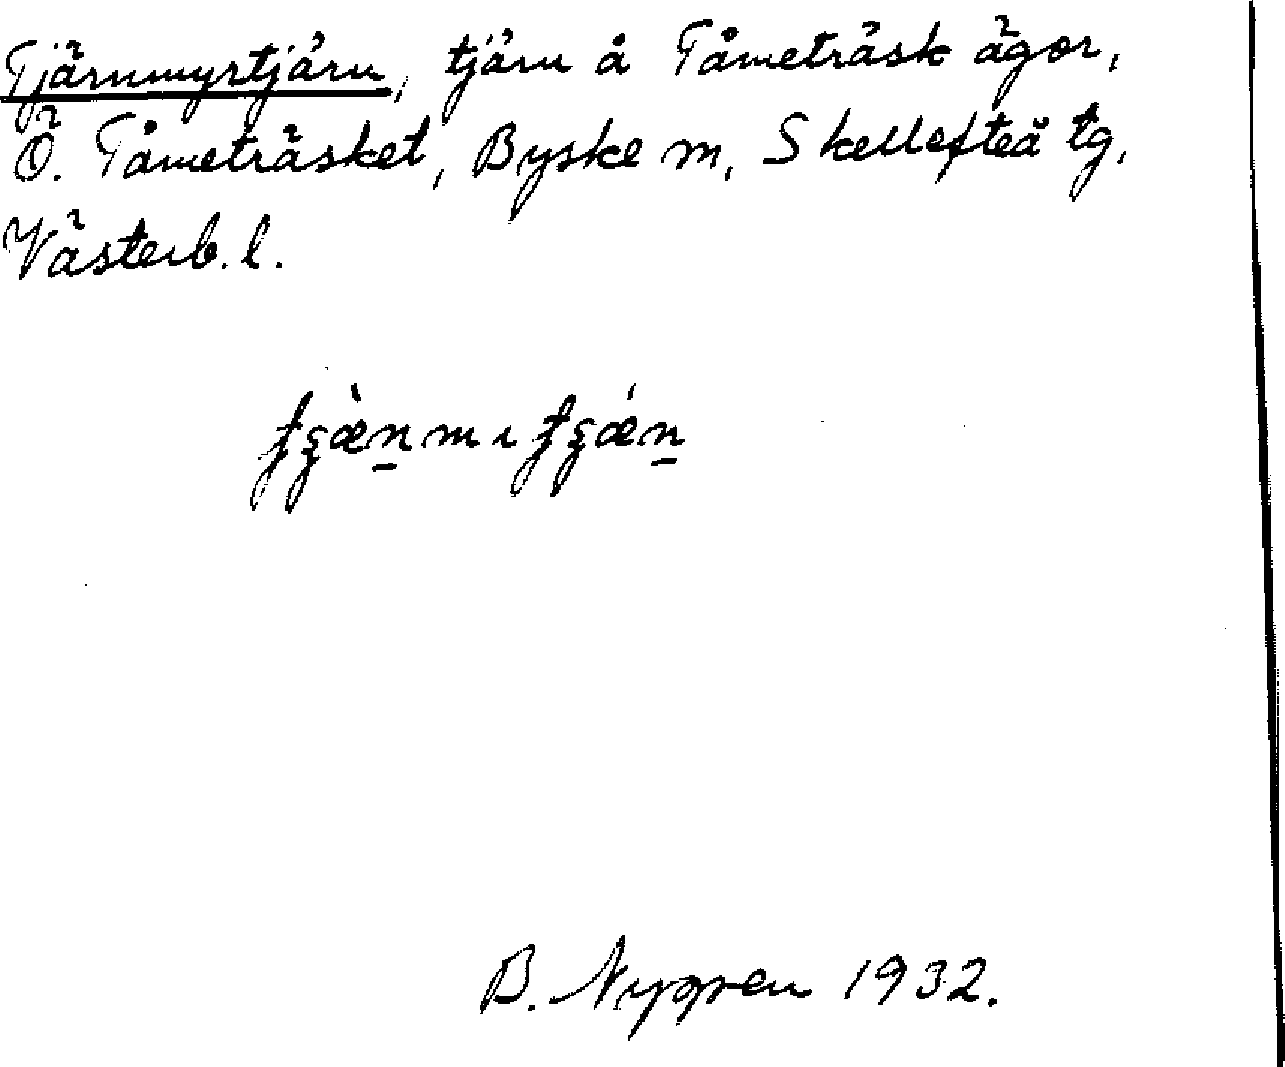 Tjärnmyrtjärn, tjärn å Tåmeträsk ägor,
Ö. Tåmeträsket, Byske m, Skellefteå tg,
Västerb. l.
B. Nygren 1932.